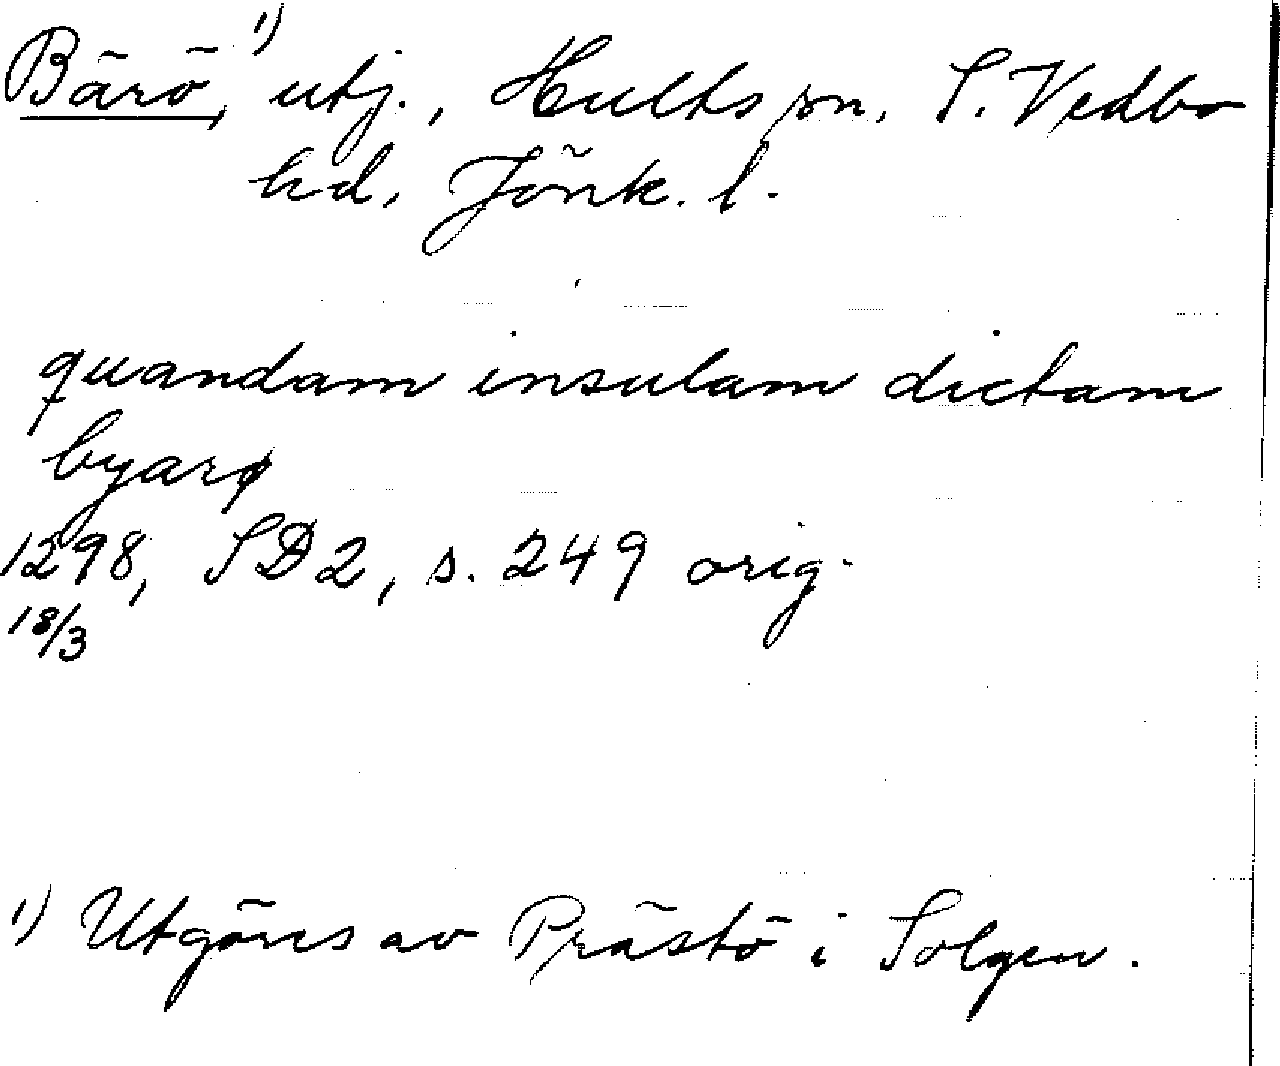 Bärö,¹⁾ utj., Hults sn, S. Vedbo
hd, Jönk. l.
quandam insulam dictam
byarø
1298, SD2, s. 249 orig.
18/3
1) Utgöres av Prästö i Solgen.